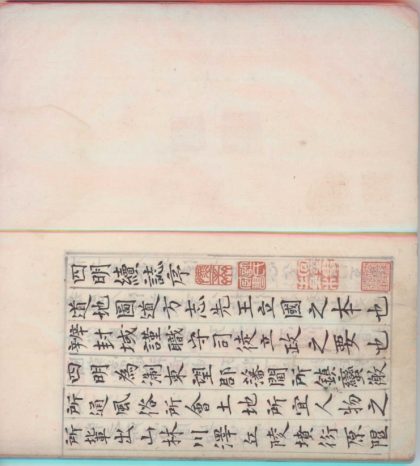 四明續誌序
道地圖道方志先王立國之本也
辨封域謹職守司徒立政之要也
四明為淛東望郡藩閫所鎮蠻徼
所道風俗所會土地所宜人物之
所輩出山林川澤丘陵墳衍原隰